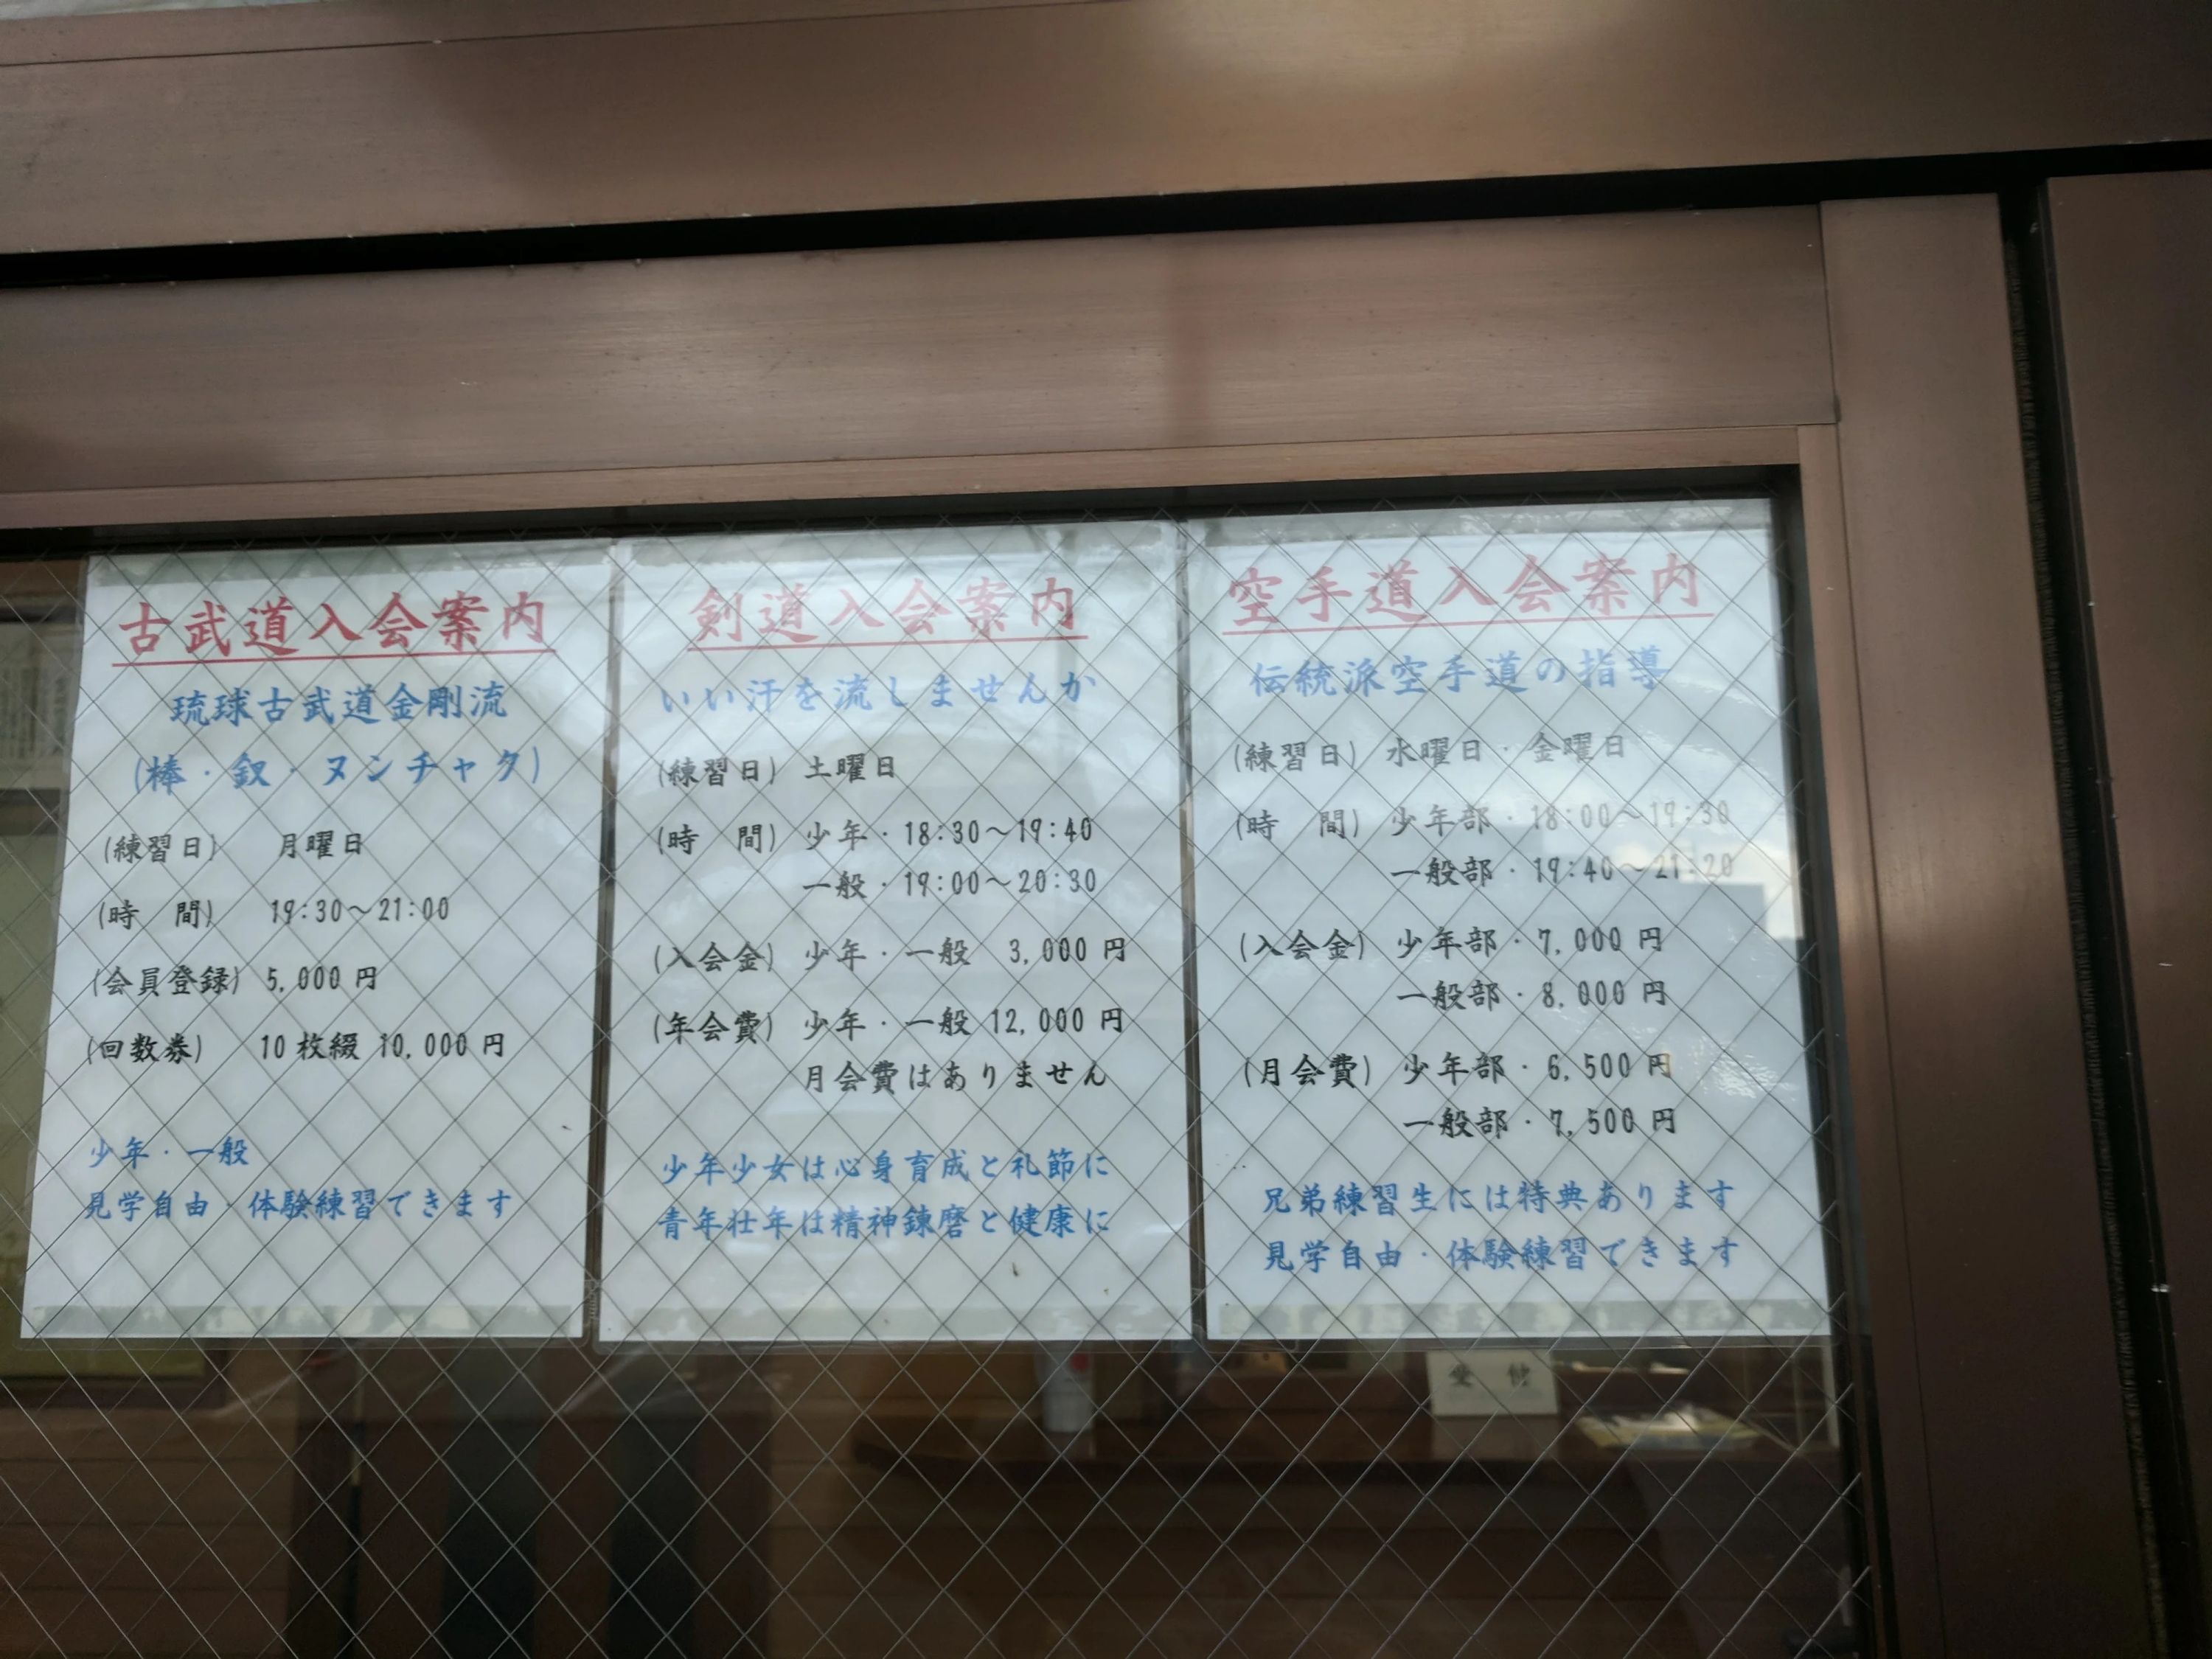 古武道入会案内
琉球古武道金剛流
(棒・釵・ヌンチャク)
(練習日) 月曜日
(時 間) 19:30～21:00
(会員登録) 5,000 円
(回数券) 10 枚綴 10,000 円
少年・一般
見学自由・体験練習できます
剣道入会案内
いい汗を流しませんか
(練習日) 土曜日
(時 間) 少年・18:30～19:40
一般・19:00～20:30
(入会金) 少年・一般 3,000 円
(年会費) 少年・一般 12,000 円
月会費はありません
少年少女は心身育成と礼節に
青年壮年は精神錬磨と健康に
空手道入会案内
伝統派空手道の指導
(練習日) 水曜日・金曜日
(時 間) 少年部・18:00～19:30
一般部・19:40～21:20
(入会金) 少年部・7,000 円
一般部・8,000 円
(月会費) 少年部・6,500 円
一般部・7,500 円
兄弟練習生には特典あります
見学自由・体験練習できます
受 付